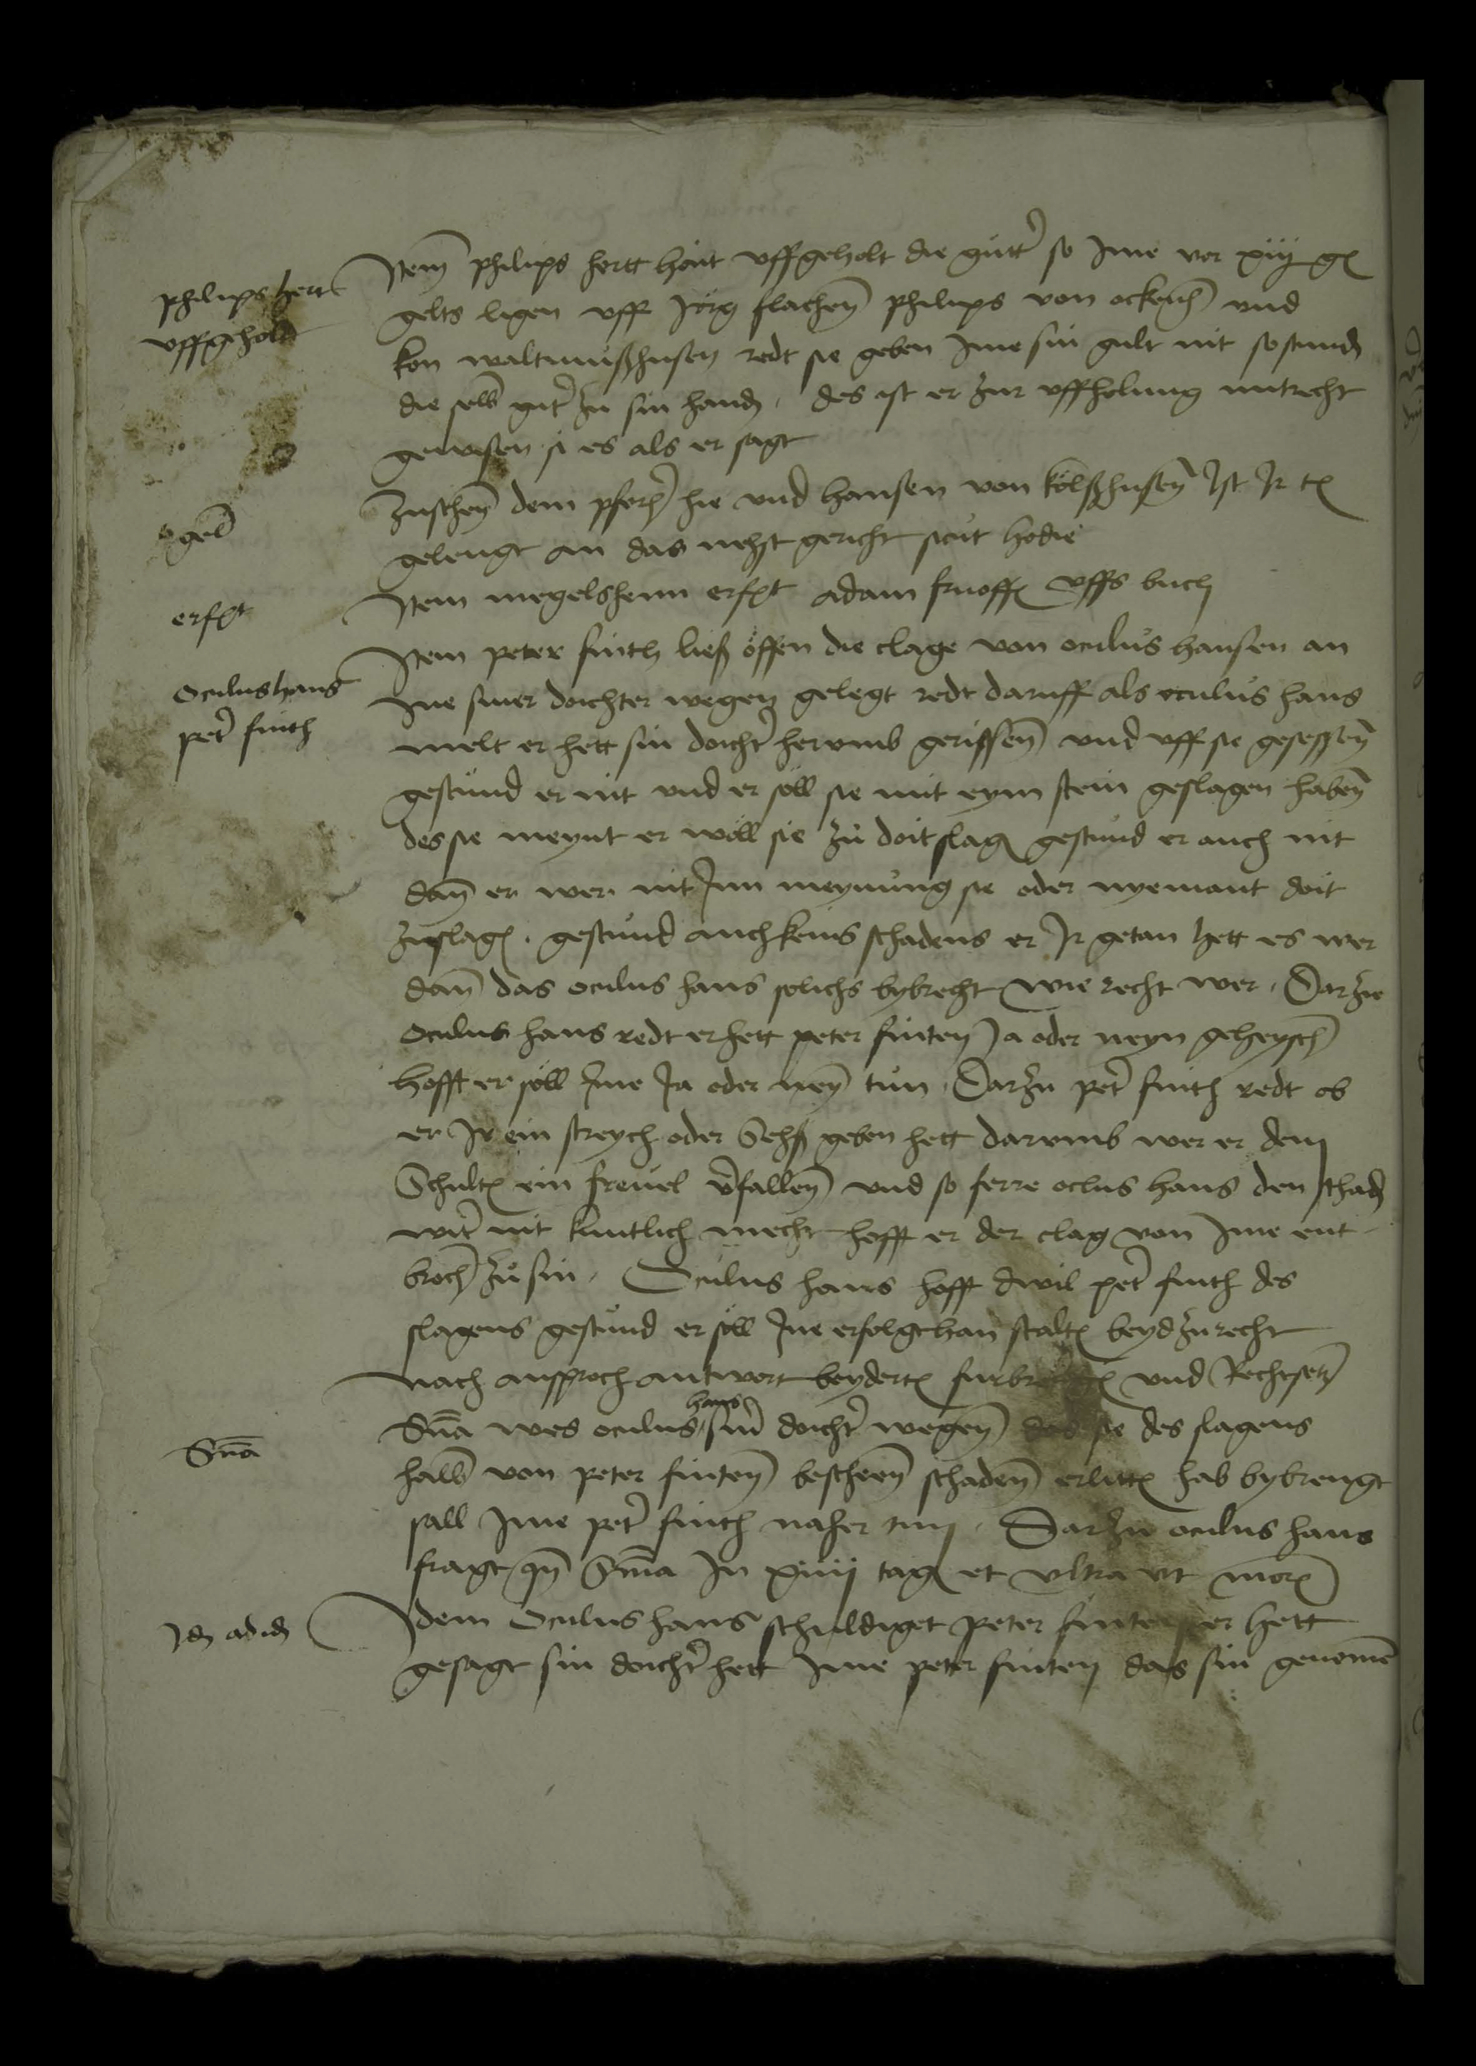 philips hert
uffgeholt
Item philips hertt hait uffgeholt die gutt so Ime vor xiij gl
gelts ligen uff Jorg flachen philips von ockenh und
kon waltmußhusen redt sie geben Ime sin gult nit so stunden
die selb gut zu sin handen . des ist er zur uffholung mit recht
gewisen si es als er sagt
gel
Zuschen dem pferer hie und hansen von kolßhusen Ist Ir tg
gelengt an das nehst gericht sicut hodie
erfolgt
Item megelshem erfolgt adam uffs buch
Oculus hans
peter finth
Item peter finth ließ offen die clage von oculus hansen an
Ine siner dochter wegen gelegt redt daruff als oculus hans
melt er hett sin docht herumb gerissen und uff sie gesessen
gestund er nit und er soll sie mit eym stein geslagen haben
des sie meynt er woll sie zu doit slagen gestund er auch nit
dan er wer nit Inn meynung sie oder nyemant doit
zuslagen . gestund auch keins schadens er Ir getan hett es wer
dan das oculus hans solichs bybrecht wie recht wer . Darzu
Oculus hans redt er hett peter finten Ja oder neyn geheysch
hofft er soll Ime Ja oder neyn tun . Darzu peter finth redt ob
er Ir ein streych oder Sehß geben hett darumb wer er dem
Schulten ein frevel verfallen und so ferre oclus hans den schaden
witer nit kuntlich mecht hofft er der clag von Ime ent
broch zu sin . Oculus hans hofft dwil peter finth des
slagens gestund er soll Ine erfolgt han stalten beyd zu recht
nach ansproch antwort beyderten und Rechtsetz
Sna
Sna wes oculus hans sin docht wegen das sie des slagens
halb von peter finten bescheen schaden erlitten hab bybrengt
sall Ime peter finth naher tun . Darzu oculus hans
fragt qn Sma In xiiij tagen et ultra ut moris
Idem ad idem
Idem Oculus hans schuldiget peter finten er hett
gesagt sin docht hett Ime peter finten das sin genomen